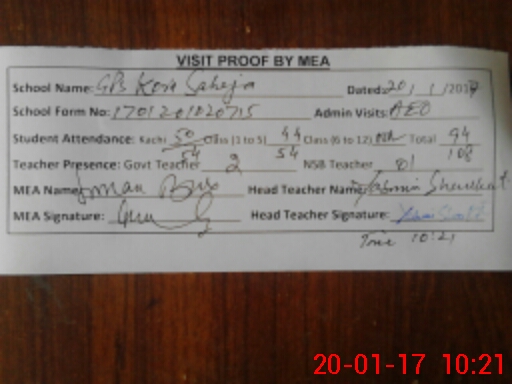 VISIT PROOF BY MEA
School Name: GPS Kora Saheja Dated: 20/1/2017
School Form No: 1701201020715 Admin Visits: AEO
Student Attendance: Kachi 50 Class (1 to 5) 44 Class (6 to 12) Nil Total 94
54 54 108
Teacher Presence: Govt Teacher 2 NSB Teacher 01
MEA Name: Head Teacher Name:
MEA Signature: Head Teacher Signature:
Time 10:21
20-01-17 10:21